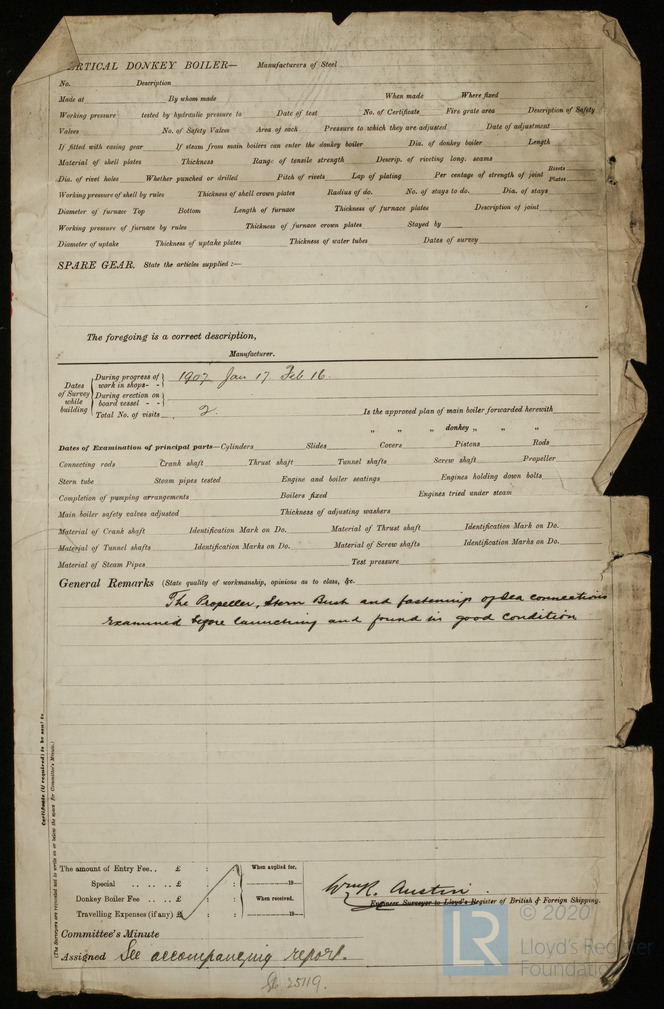 ERTICAL DONKEY BOILER— Manufacturers of Steel
No. Description
Made at By whom made When made Where fixed
Working pressure tested by hydraulic pressure to Date of test No. of Certificate Fire grate area Description of Safety
Valves No. of Safety Valves Area of each Pressure to which they are adjusted Date of adjustment
If fitted with easing gear If steam from main boilers can enter the donkey boiler Dia. of donkey boiler Length
Material of shell plates Thickness Range of tensile strength Descrip. of riveting long. seams
Dia. of rivet holes Whether punched or drilled Pitch of rivets Lap of plating Per centage of strength of joint Rivets Plates
Working pressure of shell by rules Thickness of shell crown plates Radius of do. No. of stays to do. Dia. of stays
Diameter of furnace Top Bottom Length of furnace Thickness of furnace plates Description of joint
Working pressure of furnace by rules Thickness of furnace crown plates Stayed by
Diameter of uptake Thickness of uptake plates Thickness of water tubes Dates of survey
SPARE GEAR. State the articles supplied :—
The foregoing is a correct description,
Manufacturer.
Dates of Survey while building
During progress of work in shops - - 1907 Jan 17 Feb 16
During erection on board vessel - -
Total No. of visits 2. Is the approved plan of main boiler forwarded herewith
" " " donkey " " "
Dates of Examination of principal parts—Cylinders Slides Covers Pistons Rods
Connecting rods Crank shaft Thrust shaft Tunnel shafts Screw shaft Propeller
Stern tube Steam pipes tested Engine and boiler seatings Engines holding down bolts
Completion of pumping arrangements Boilers fixed Engines tried under steam
Main boiler safety valves adjusted Thickness of adjusting washers
Material of Crank shaft Identification Mark on Do. Material of Thrust shaft Identification Mark on Do.
Material of Tunnel shafts Identification Marks on Do. Material of Screw shafts Identification Marks on Do.
Material of Steam Pipes Test pressure
General Remarks (State quality of workmanship, opinions as to class, &c.
The Propeller, Stern Bush and fastenings of Sea connections
examined before launching and found in good condition
Certificate (if required) to be sent to
(The Surveyors are requested not to write on or below the space for Committee's Minute.)
The amount of Entry Fee . . £ : : When applied for,
Special . . . . . £ : : 19
Donkey Boiler Fee . . . £ : : When received,
Travelling Expenses (if any) £ : : 19
Wm R. Austin.
Engineer Surveyor to Lloyd's Register of British & Foreign Shipping.
Committee's Minute
Assigned See accompanying report.
25119.
LR
© 2020
Lloyd's Register
Foundation